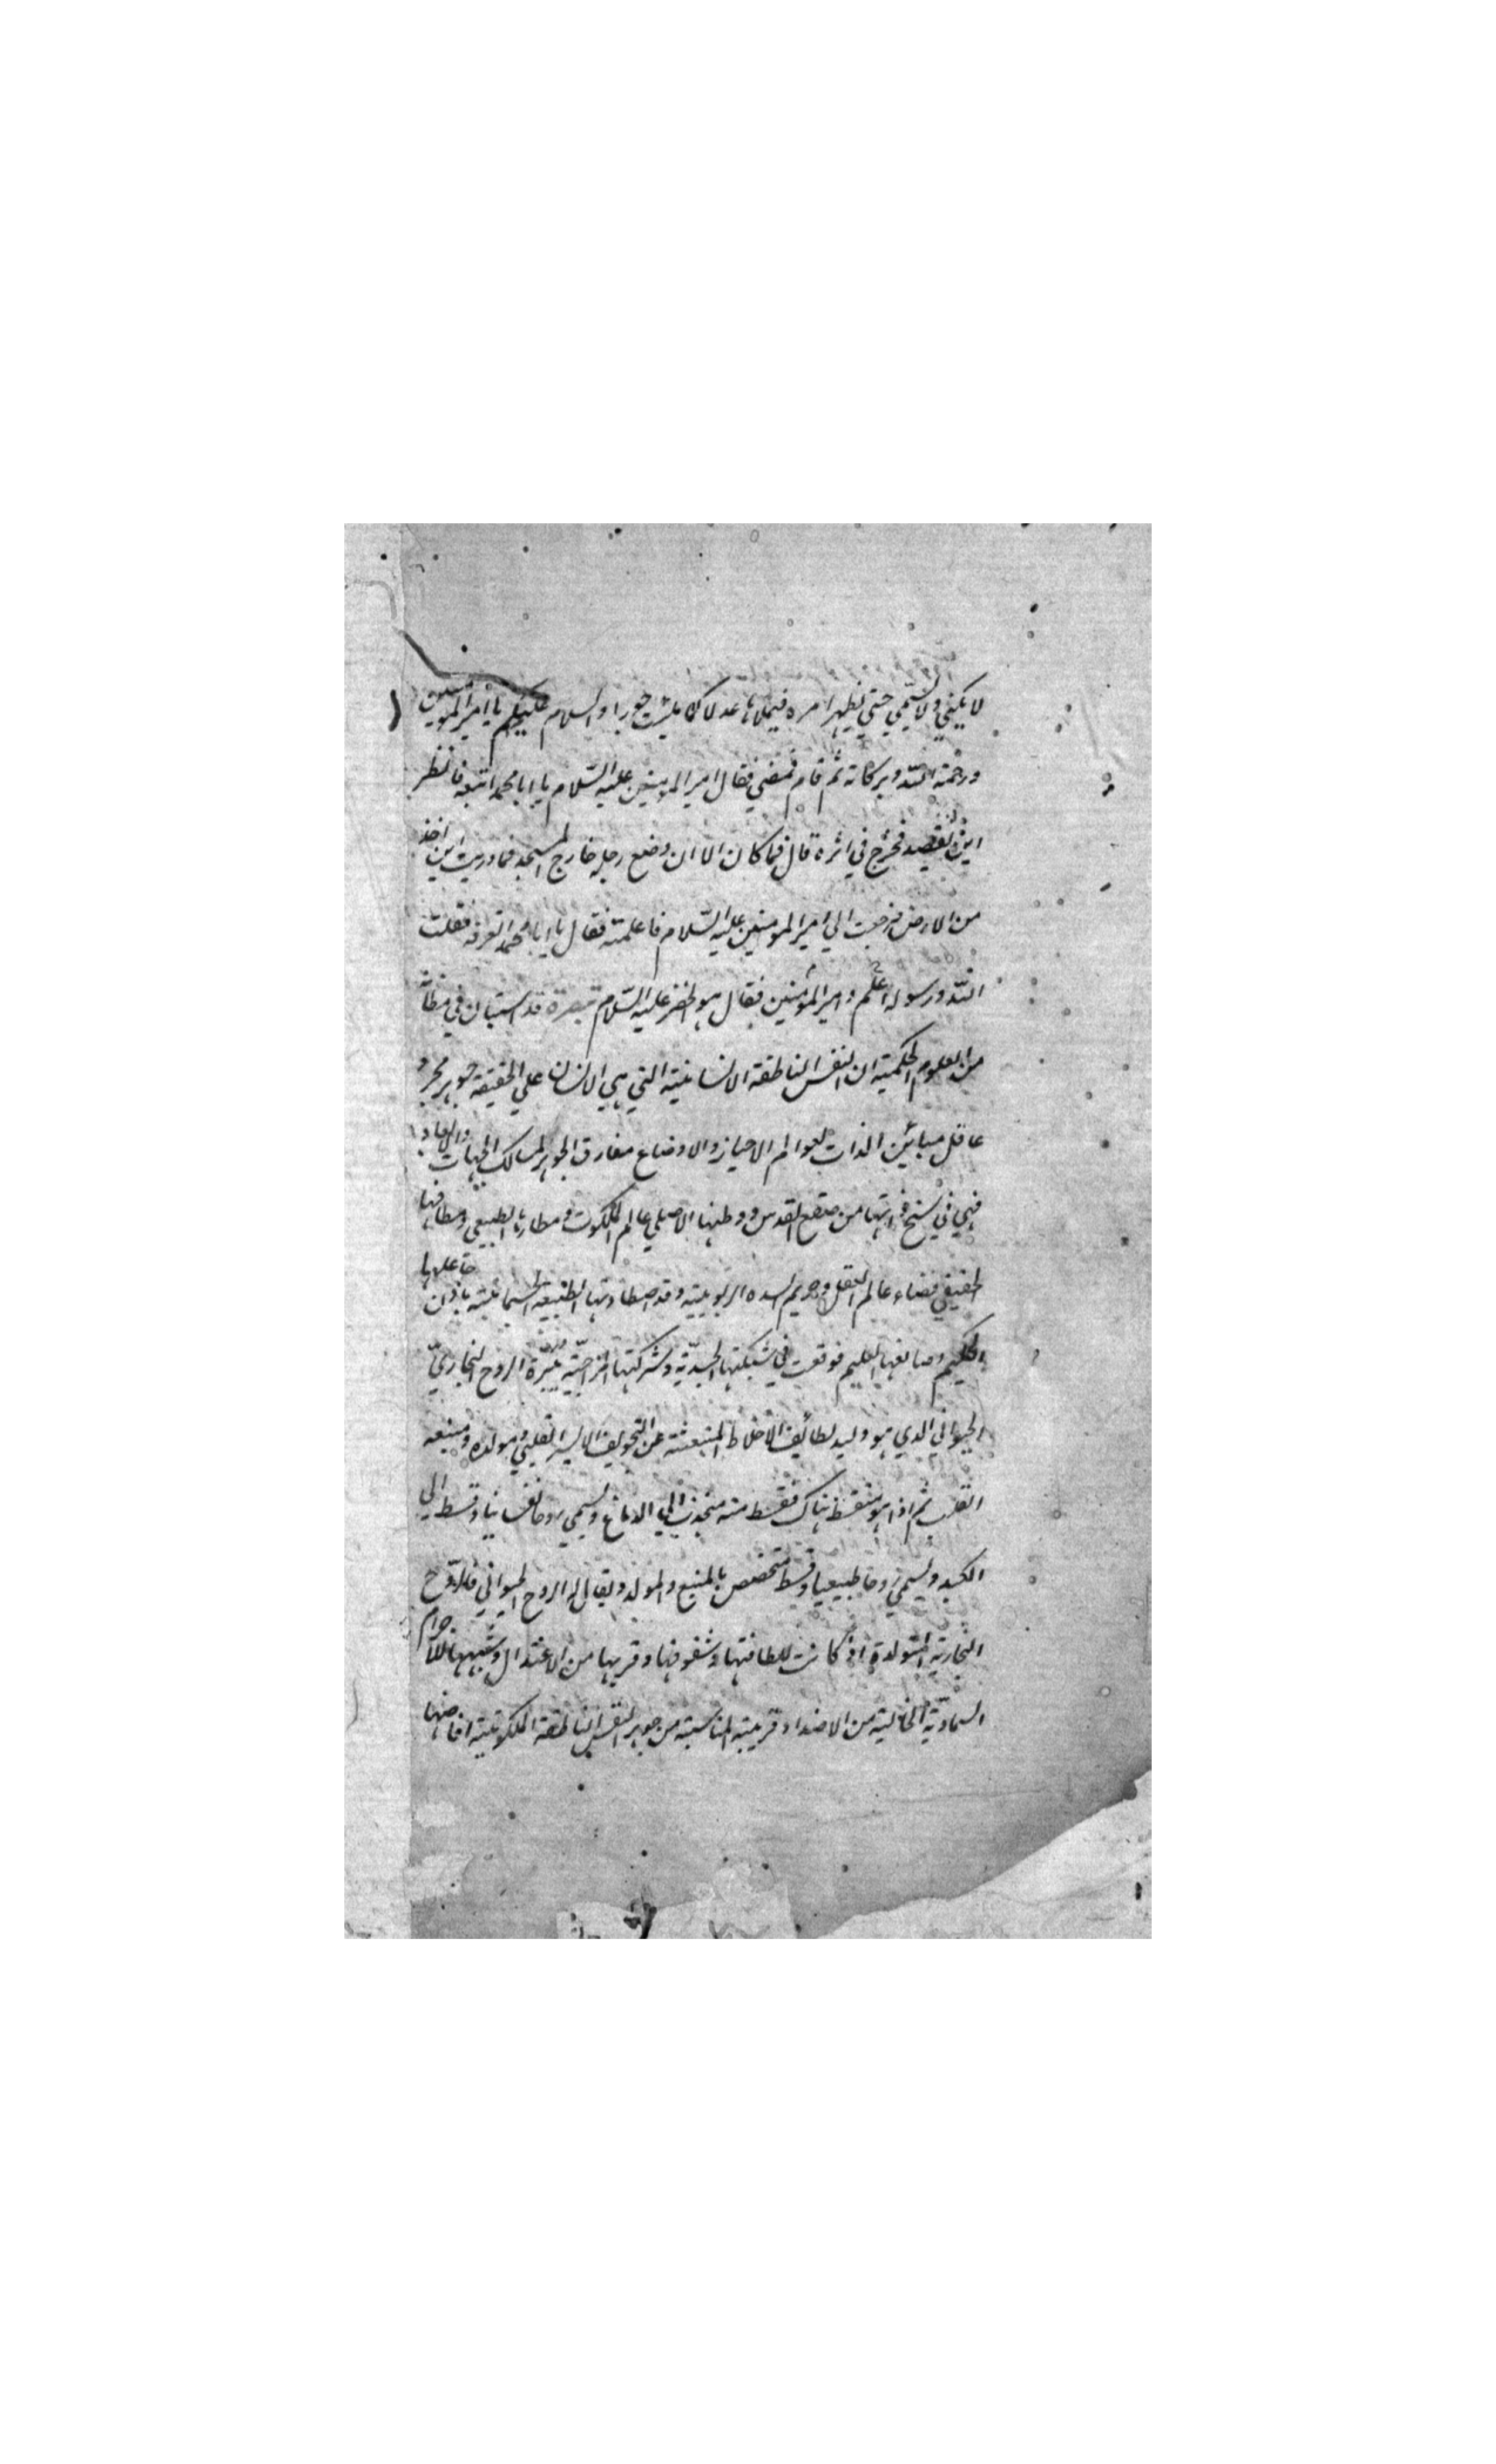 لا يكنى ولا يسمى حتى يظهر امره فيملاها عدلا كما ملئت جورا والسلام عليكم يا امير المومنين
ورحمة الله وبركاته ثم قام فمضى فقال امير المومنين عليه السلام يا ابا محمد اتبعه فانظر
اين يقصد فخرج في اثره قال فما كان الا ان وضع رجله خارج المسجد فما دريت اين اخذ
من الارض فرجعت الى امير المومنين عليه السلام فاعلمته فقال يا ابا محمد اتعرفه فقلت
الله ورسوله اعلم وامير المؤمنين فقال هو الخضر عليه السلام تبصرة قد استبان في مظانه
من العلوم الحكمية ان النفس الناطقة الانسانية التي هي الانسان على الحقيقة جوهر مجرد
عاقل مباين الذات لعوالم الاحياز والاوضاع مفارق الجوهر لمسالك الجهات والابعاد
فهي في سنخ ذاتها من صقع القدس ووطنها الاصلي عالم الملكوت ومطارها الطبيعي ومطافها
الحقيقي فضاء عالم العقل وحريم السدة الربوبية وقد اصطادتها الطبيعة الجسمانية باذن جاعلها
الحكيم وصانعها العليم فوقعت في شبكتها الجسدية وشركتها المزاجية الروح البخاري
الحيواني الذي هو وليد لطائف الاخلاط المنبعثة عن التجويف الايسر القلبي ومولده ومنبعه
القلب ثم اذا هو هناك فقسط منه منجذب الى الدماغ ويسمى روحا نفسانيا وقسط الى
الكبد ويسمى روحا طبيعيا وقسط متخصص بالمنبع والمولد ويقال له الروح الحيواني فللروح
البخارية المتولدة اذ كانت للطافتها وشفوفها وقربها من الاعتدال وشبهها للاجرام
السماوية الخالية من الاضداد قريبة المناسبة من جوهر النفس الناطقة الملكوتية افاضها